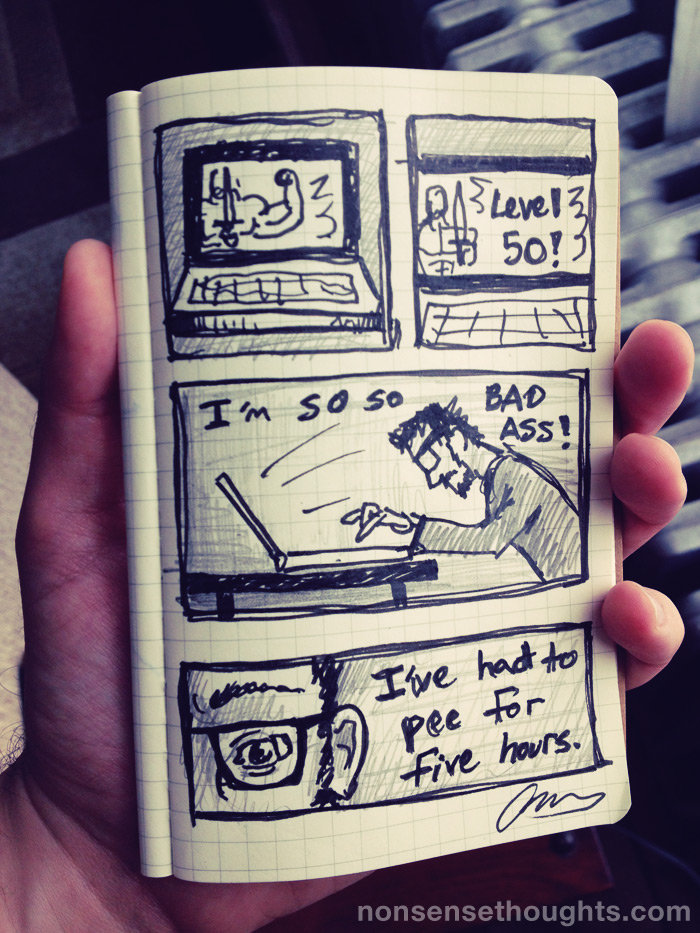 Level
50!
I'm so so
BAD
ASS!
I've had to
pee for
five hours.
nonsensethoughts.com